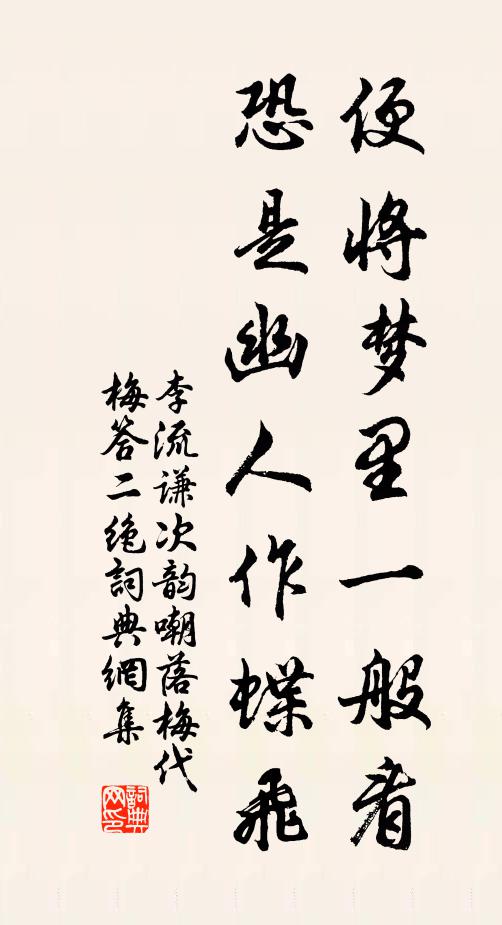 便将梦里一般看
恐是幽人作蝶飛
李流谦次韵嘲落梅代
梅答二绝詞典網集
詞典
网印